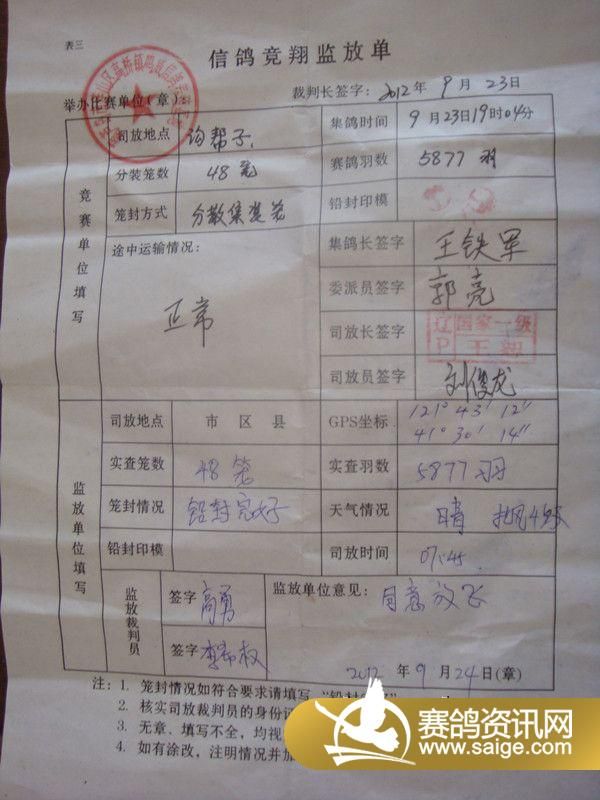 表三
信鸽竞翔监放单
举办比赛单位(章):
裁判长签字: 2012年 9 月 23 日
竞赛单位填写
司放地点 沟帮子
集鸽时间 9 月 23 日 19 时 04 分
分装笼数 48 笼
赛鸽羽数 5877 羽
笼封方式 分散集装笼
铅封印模
途中运输情况:
正常
集鸽长签字 王铁军
委派员签字 郭亮
司放长签字
辽 国家一级
P 王
司放员签字 刘俊龙
监放单位填写
司放地点 市 区 县
GPS坐标 121° 43′ 12″
41° 30′ 14″
实查笼数 48 笼
实查羽数 5877 羽
笼封情况 铅封完好
天气情况 晴 北风4级
铅封印模
司放时间 07:45
监放裁判员
签字 高勇
签字
监放单位意见: 同意放飞
2012 年 9 月 24 日(章)
注: 1. 笼封情况如符合要求请填写
2. 核实司放裁判员的身份
3. 无章、填写不全,均视
4. 如有涂改,注明情况并加
赛鸽资讯网
www.saige.com